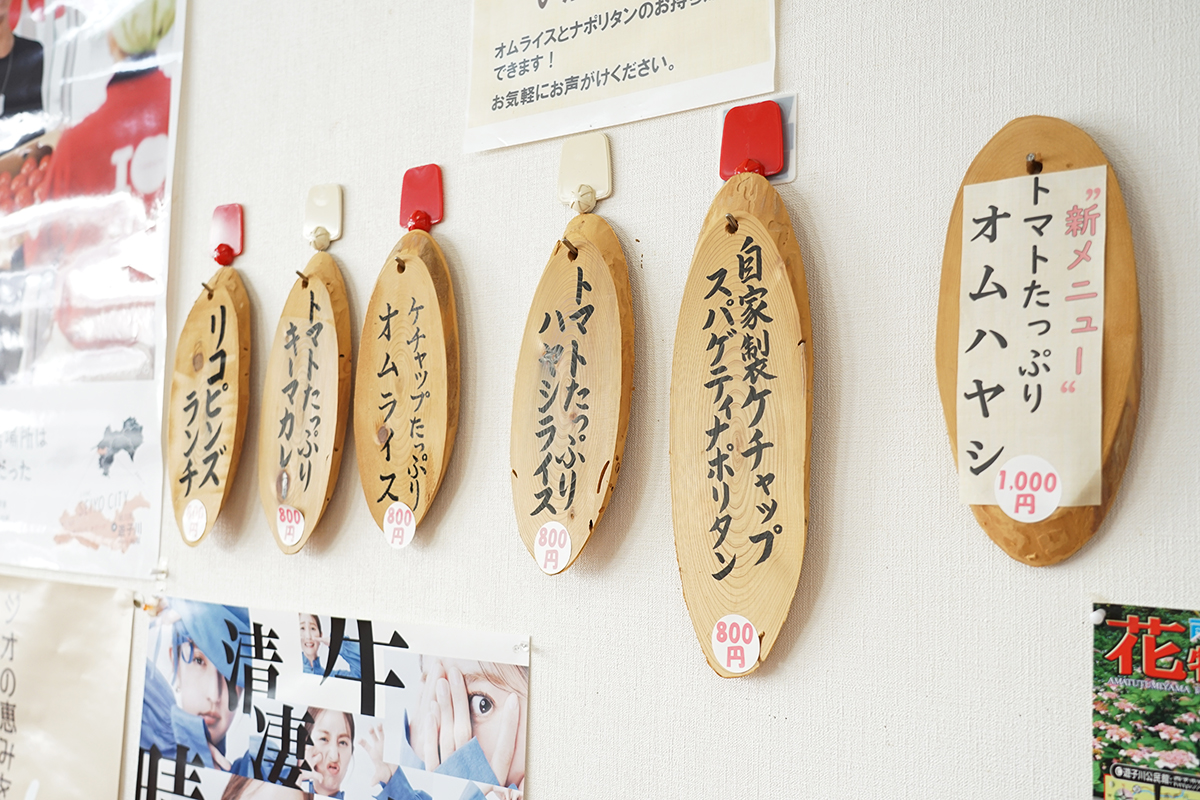 オムライスとナポリタンのお持ち
できます！
お気軽にお声がけください。
リコピンズ
ランチ
トマトたっぷり
キーマカレー
800
円
ケチャップたっぷり
オムライス
800
円
トマトたっぷり
ハヤシライス
800
円
自家製ケチャップ
スパゲティナポリタン
800
円
”新メニュー“
トマトたっぷり
オムハヤシ
1,000
円
場所は
だった
SEIYO CITY
遊子川
ジオの恵みを
牛
清
凄
晴
花
AMATUTI MIYAMA
遊子川公民館